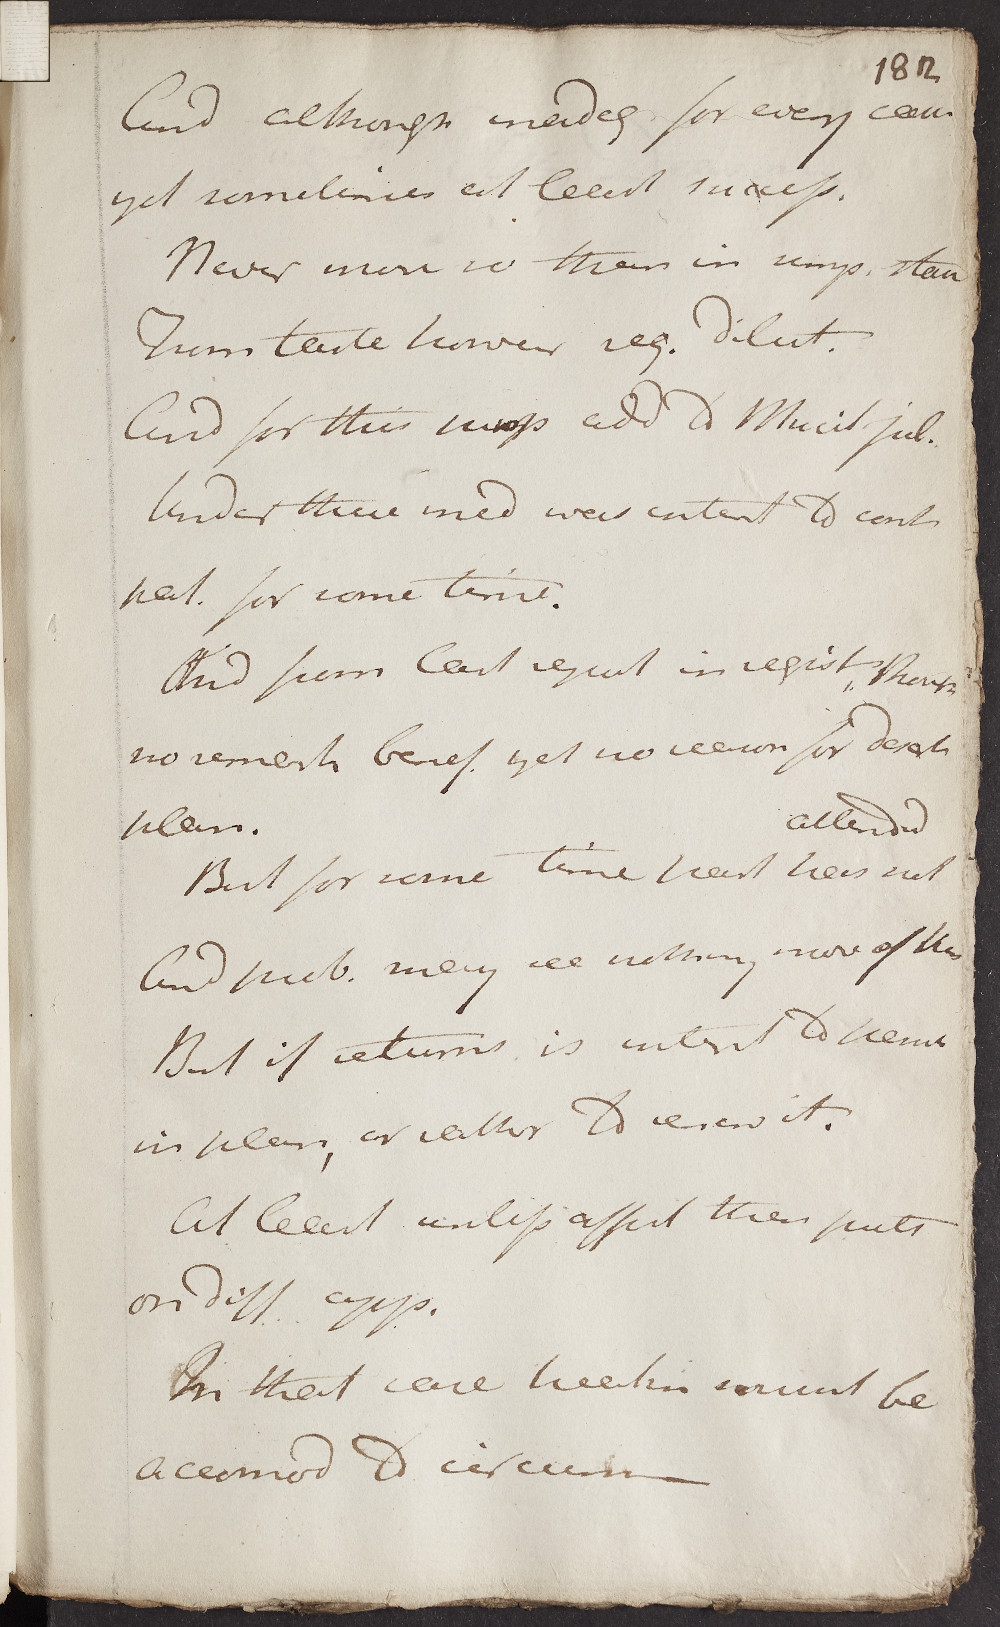 182
And although inadeq for every case
yet sometimes at least success.
Never more so than in simp. state
From taste however req. dilut.
And for this purp add to Mucil. jul.
Under these med was intent to cont
pat. for some time.
And from last report in regist, though
no remark benef. yet no reason for desert
plan.
attended
But for some time past has not
And prob. may see nothing more of him
But if returns is intent to persev
in plan, or rather to renew it.
At least unless affect then puts
on diff app.
In that case practice must be
accomod to circum